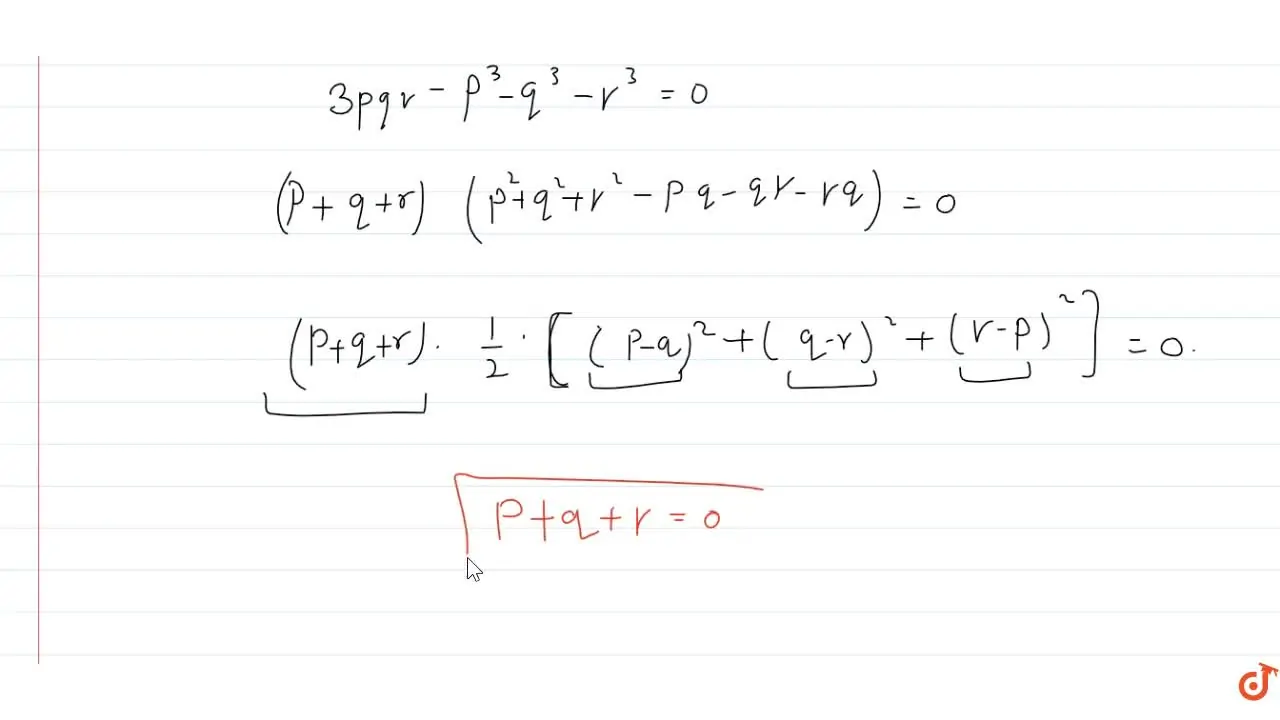 3pqr - p³ - q³ - r³ = 0
(p + q + r) (p² + q² + r² - pq - qr - rq) = 0
(p + q + r) · 1/2 · [(p-q)² + (q-r)² + (r-p)²] = 0.
p + q + r = 0